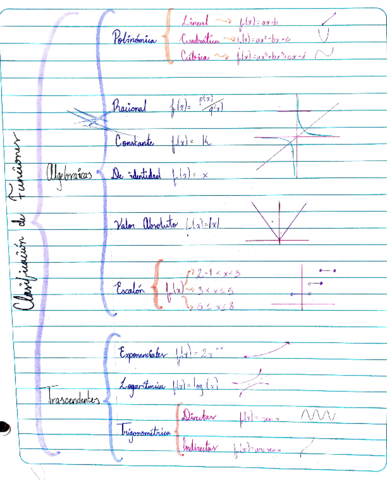 Clasificación de Funciones
Algebraicas
Polinómica
Lineal → f(x)=ax+b
Cuadrática → f(x)=ax²+bx+c
Cúbica → f(x)=ax³+bx²+cx+d
Racional f(x)= p(x)/q(x)
Constante f(x)= K
De identidad f(x)= x
Valor Absoluto f(x)=|x|
Escalón f(x)
2 -1<x<3
3<x≤5
5≤x≤8
Trascendentes
Exponenciales
Logarítmica f(x)=log(x)
Trigonométrica
Directas f(x)=sen x
Indirectas f(x)=arcsen x